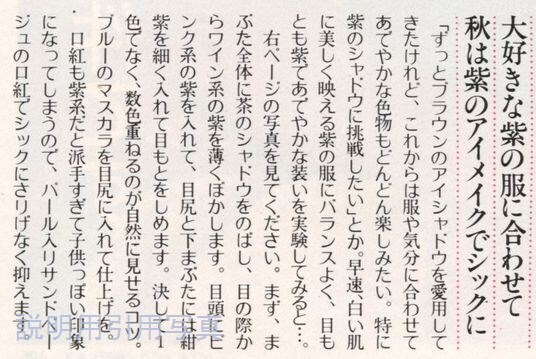 大好きな紫の服に合わせて
秋は紫のアイメイクでシックに
「ずっとブラウンのアイシャドウを愛用して
きたけれど、これからは服や気分に合わせて
あでやかな色物もどんどん楽しみたい。特に
紫のシャドウに挑戦したい」とか。早速、白い肌
に美しく映える紫の服にバランスよく、目も
とも紫であでやかな装いを実験してみると…。
右ページの写真を見てください。まず、ま
ぶた全体に茶のシャドウをのばし、目の際か
らワイン系の紫を薄くぼかします。目頭にピ
ンク系の紫を入れて、目尻と下まぶたには紺
紫を細く入れて目もとをしめます。決して1
色でなく、数色重ねるのが自然に見せるコツ。
ブルーのマスカラを目尻に入れて仕上げを。
口紅も紫系だと派手すぎて子供っぽい印象
になってしまうので、パール入りサンドベー
ジュの口紅でシックにさりげなく抑えます。
説明用引用写真